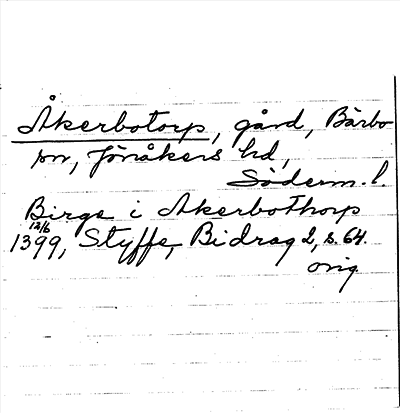 Åkerbotorp, gård, Bärbo
sn, Jönåkers hd,
Söderm. l.
Birge i Akerbothorp
12/6
1399, Styffe, Bidrag 2, s. 64.
orig